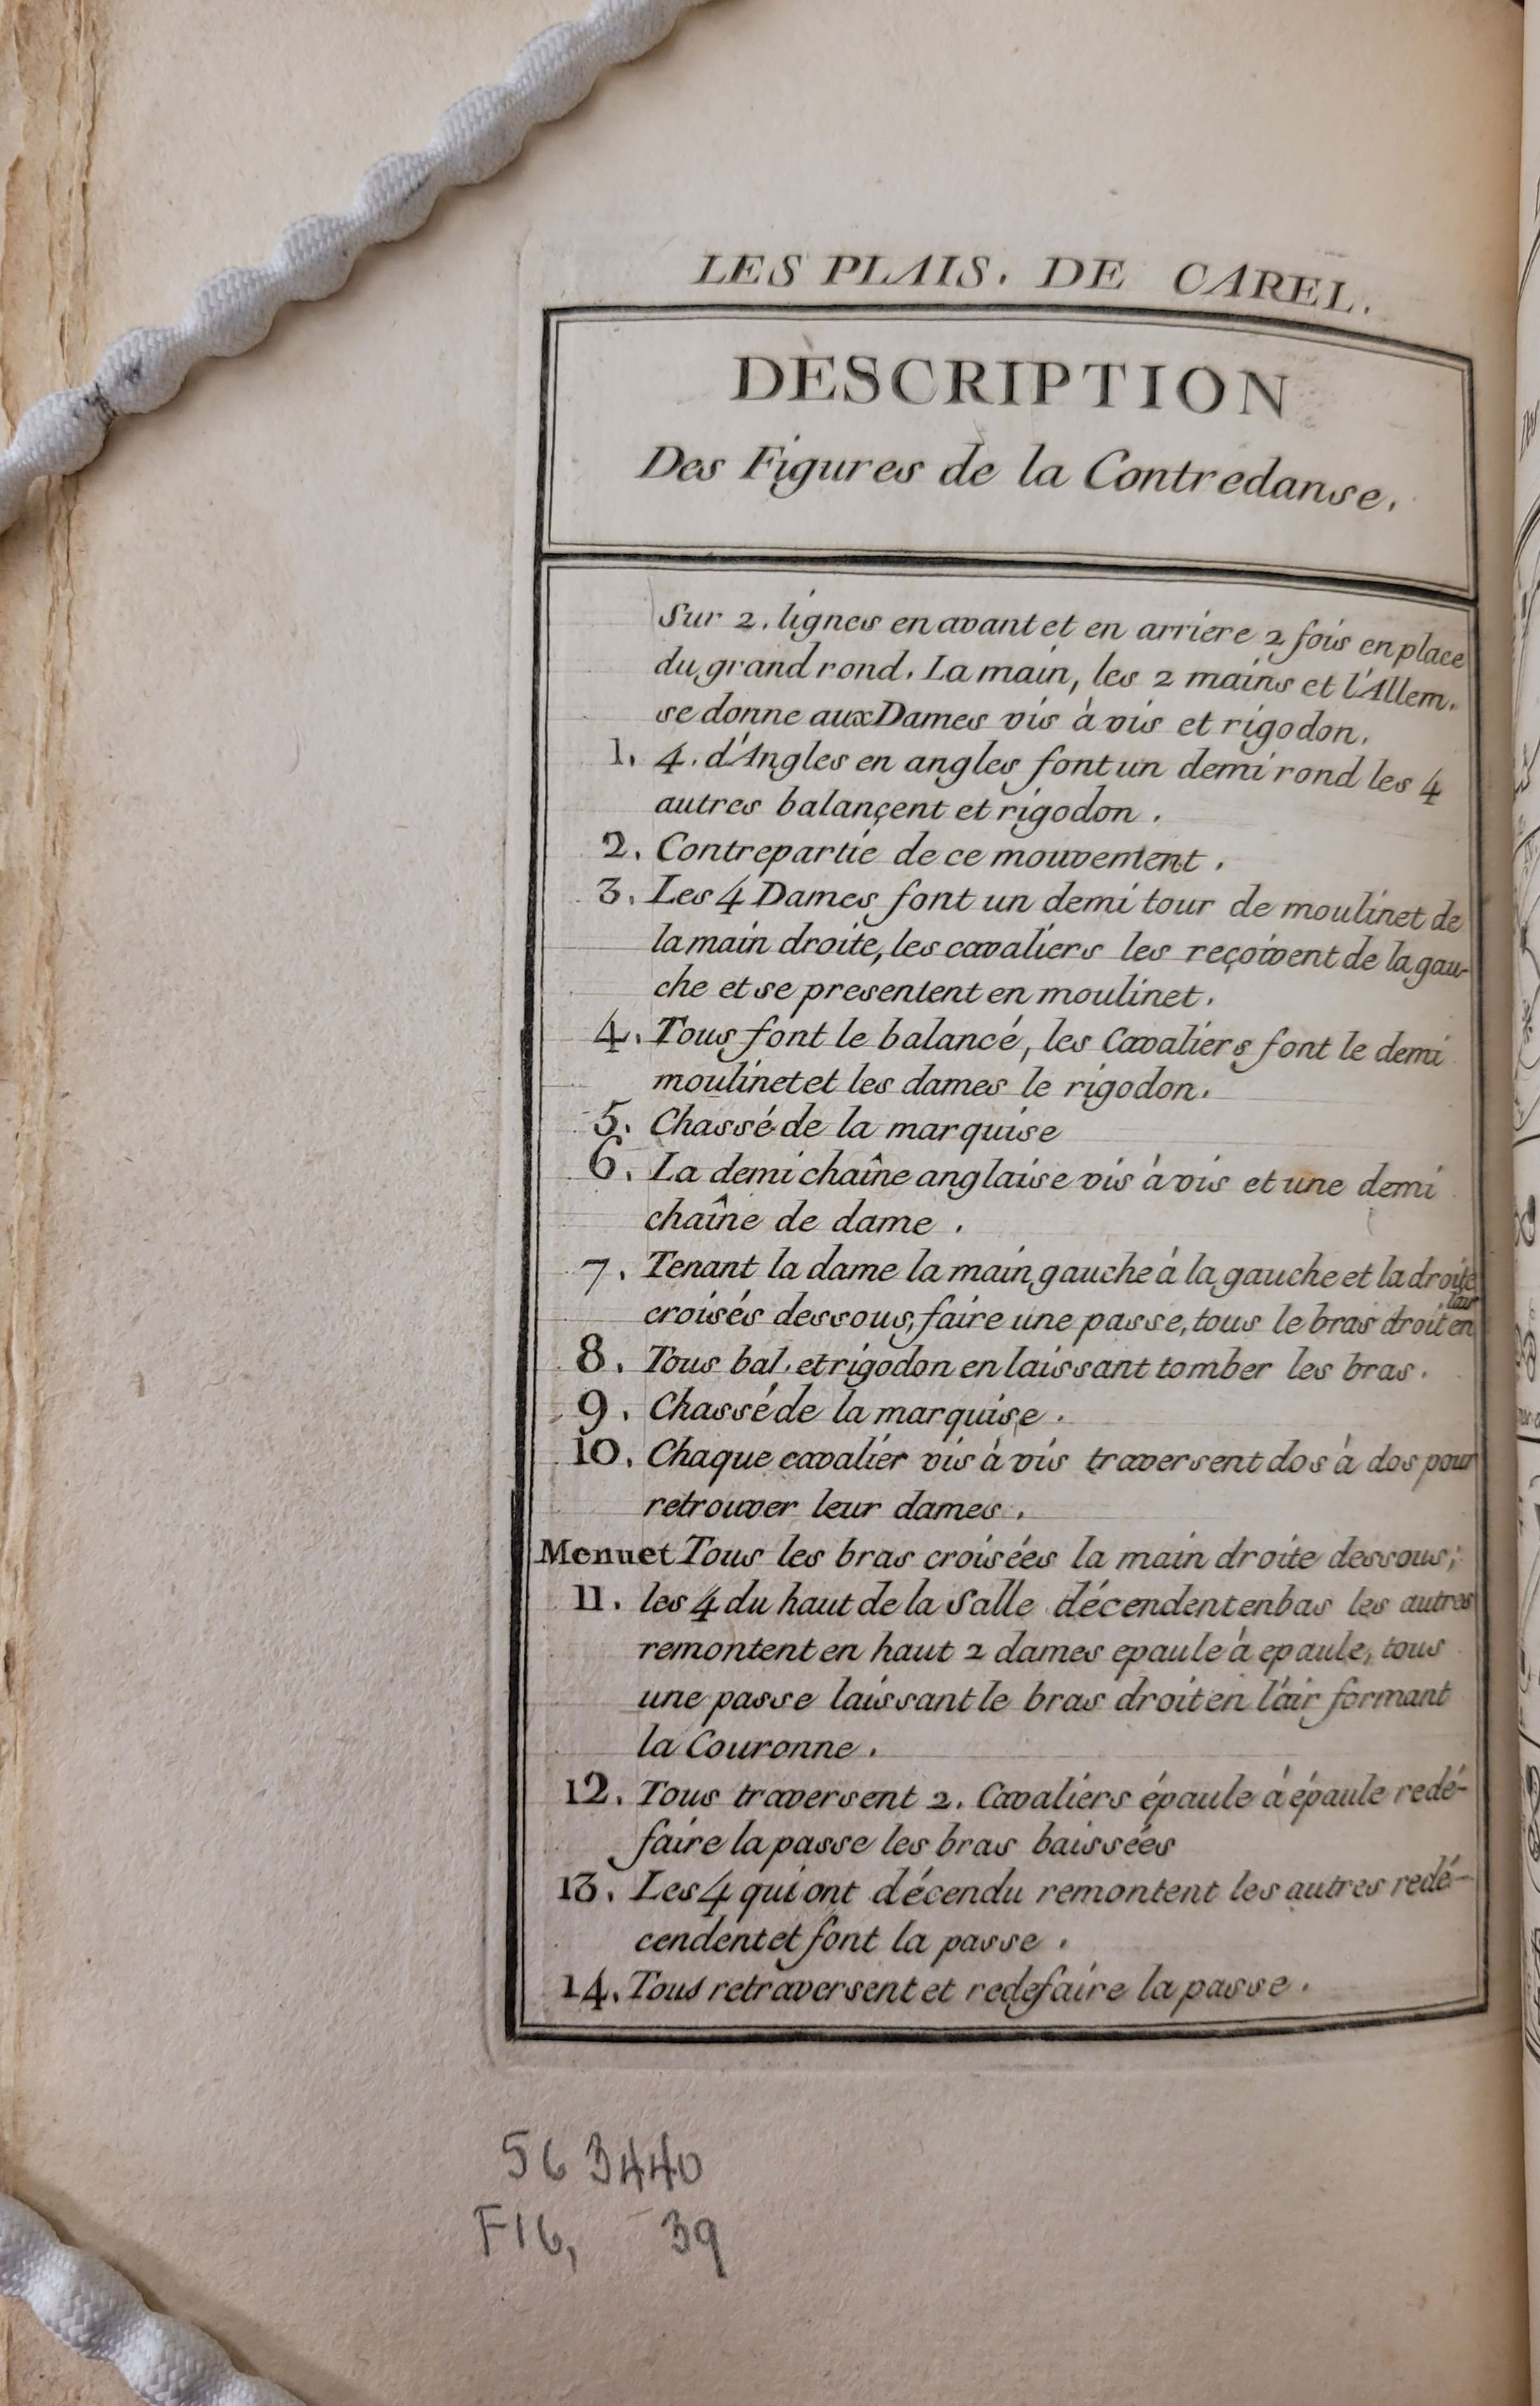 LES PLAIS. DE CAREL.
DESCRIPTION
Des Figures de la Contredanse.
Sur 2. lignes en avant et en arriere 2 fois en place
du grand rond. La main, les 2 mains et l'Allem.
se donne aux Dames vis à vis et rigodon.
1. 4. d'Angles en angles font un demi rond les 4
autres balançent et rigodon.
2. Contrepartie de ce mouvement.
3. Les 4 Dames font un demi tour de moulinet de
la main droite, les cavaliers les reçoivent de la gau-
che et se presentent en moulinet.
4. Tous font le balancé, les Cavaliers font le demi
moulinet et les dames le rigodon.
5. Chassé de la marquise
6. La demi chaîne anglaise vis à vis et une demi
chaîne de dame.
7. Tenant la dame la main gauche à la gauche et la droite
croisés dessous, faire une passe, tous le bras droit en l'air
8. Tous bal. et rigodon en laissant tomber les bras.
9. Chassé de la marquise.
10. Chaque cavalier vis à vis traversent dos à dos pour
retrouver leur dames.
Menuet Tous les bras croisées la main droite dessous;
11. les 4 du haut de la Salle décendent en bas les autres
remontent en haut 2 dames epaule à epaule, tous
une passe laissant le bras droit en l'air formant
la Couronne.
12. Tous traversent 2. Cavaliers épaule à épaule redé-
faire la passe les bras baissées
13. Les 4 qui ont décendu remontent les autres redé-
cendent et font la passe.
14. Tous retraversent et redefaire la passe.
563440
F16, 39